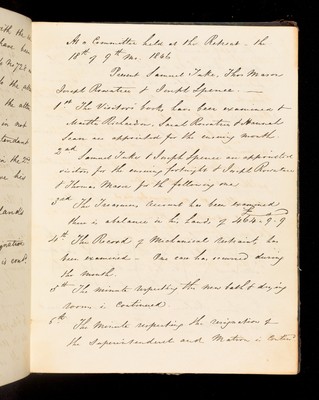 with the
have been
to No 728
to the
the
in not
tendant
on the 2nd
her
lands
resignation
is cont
At a Committee held at the Retreat the
18th of 9th Mo. 1846
Present Samuel Tuke, Thos Mason
Joseph Rowntree & Joseph Spence
1st The Visitors books have been examined &
Martha Richardson, Sarah Rowntree & Hannah
are appointed for the ensuing month
2nd Samuel Tuke & Joseph Spence are appointed
visitors for the ensuing fortnight & Joseph Rowntree
& Thomas Mason for the following one
3rd The Treasurers account has been examined
there is a balance in his hands of 464-9-9
4th The Record of Mechanical restraint has
been examined - has occurred during
the month.
5th The minute respecting the new bath & drying
room is continued
6th The Minute respecting the resignation of
the Superintendent and Matron is contind